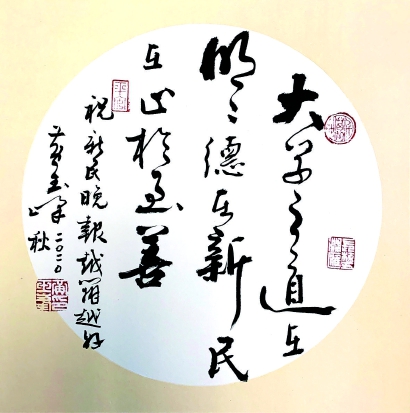 大学之道在
明〻德在新民
在止於至善
祝新民晚報越辦越好
黄玉峰
二〇二〇
秋